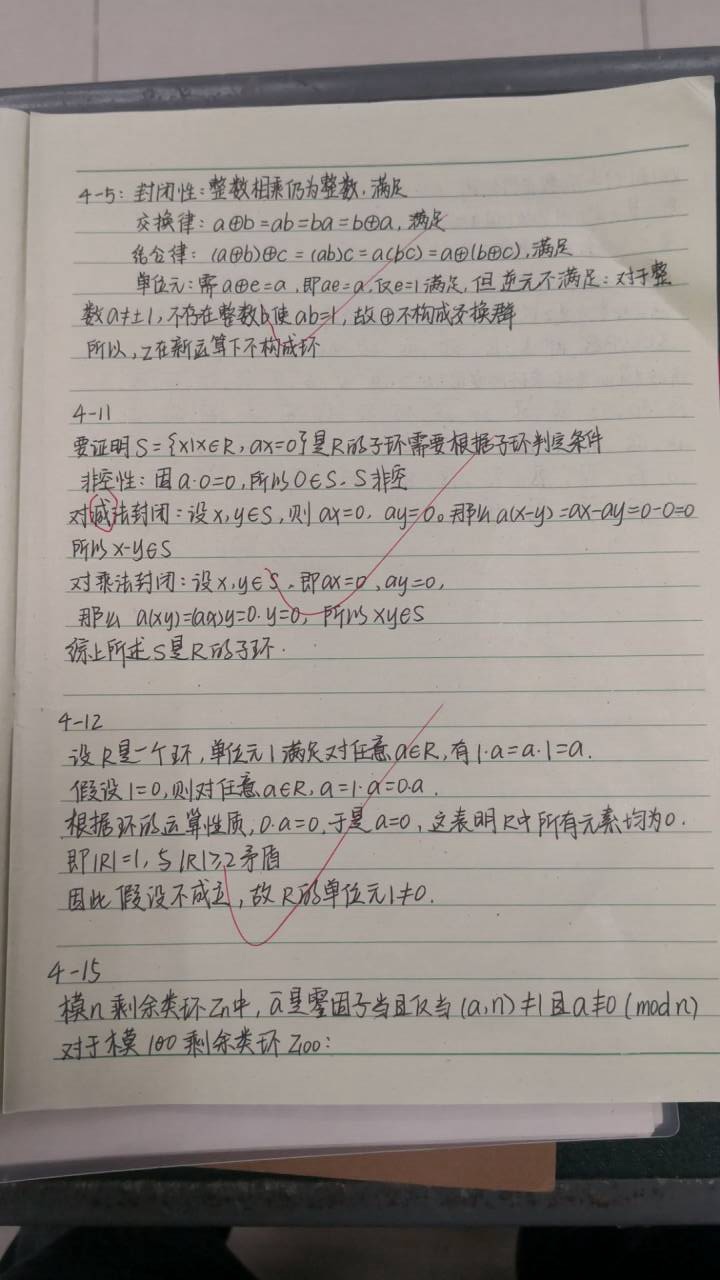 4-5: 封闭性: 整数相乘仍为整数, 满足
交换律: a⊕b=ab=ba=b⊕a, 满足
结合律: (a⊕b)⊕c=(ab)c=a(bc)=a⊕(b⊕c), 满足
单位元: 需a⊕e=a, 即ae=a, 仅e=1满足, 但逆元不满足: 对于整
数a≠±1, 不存在整数b使ab=1, 故⊕不构成交换群
所以, Z在新运算下不构成环
4-11
要证明S={x|x∈R, ax=0}是R的子环需要根据子环判定条件
非空性: 因a·0=0, 所以0∈S. S非空
对减法封闭: 设x,y∈S, 则ax=0, ay=0。那么a(x-y)=ax-ay=0-0=0
所以x-y∈S
对乘法封闭: 设x,y∈S, 即ax=0, ay=0,
那么 a(xy)=(ax)y=0·y=0, 所以xy∈S
综上所述S是R的子环.
4-12
设R是一个环, 单位元1满足对任意a∈R, 有1·a=a·1=a.
假设1=0, 则对任意a∈R, a=1·a=0·a.
根据环的运算性质, 0·a=0, 于是a=0, 这表明R中所有元素均为0.
即|R|=1, 与|R|≥2矛盾
因此假设不成立, 故R的单位元1≠0.
4-15
模n剩余类环Zn中, ā是零因子当且仅当(a,n)≠1且a≢0(modn)
对于模100剩余类环Z100: